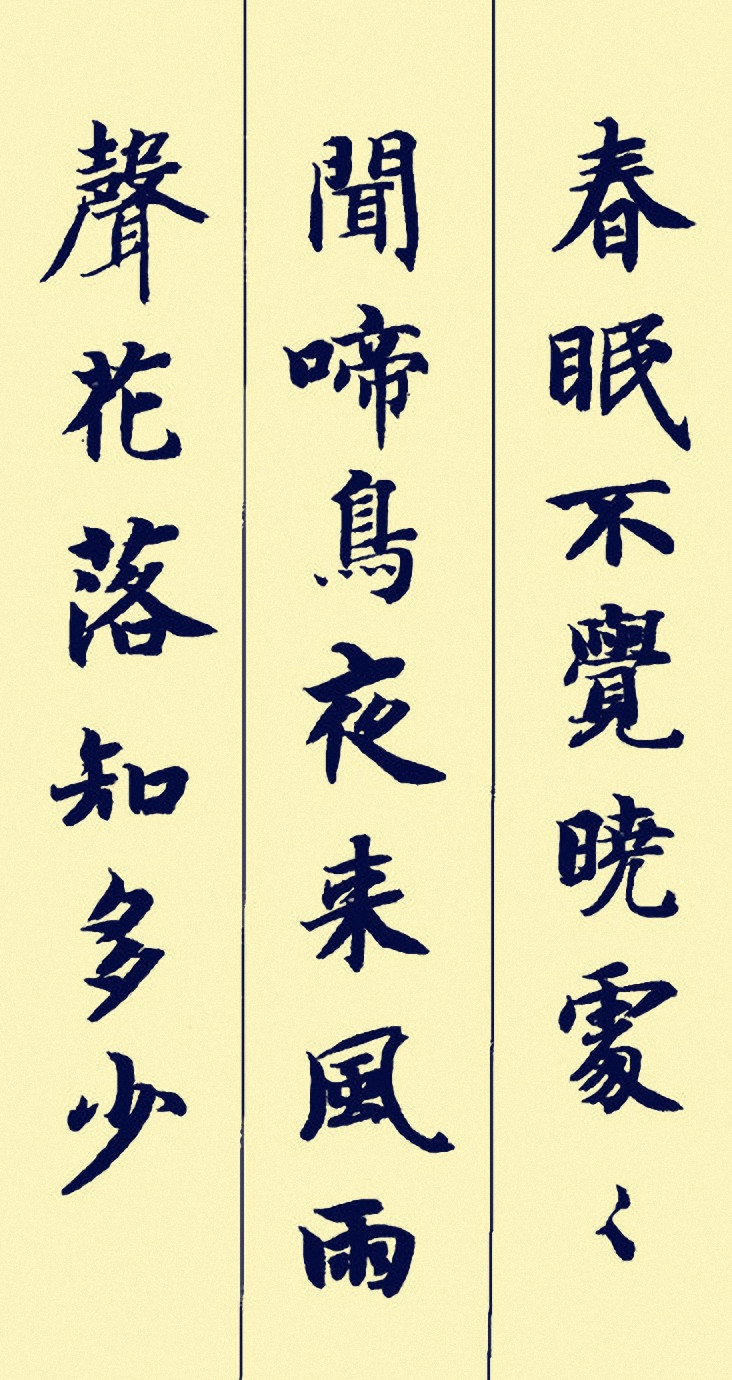 春眠不覺曉處々
聞啼鳥夜来風雨
聲花落知多少